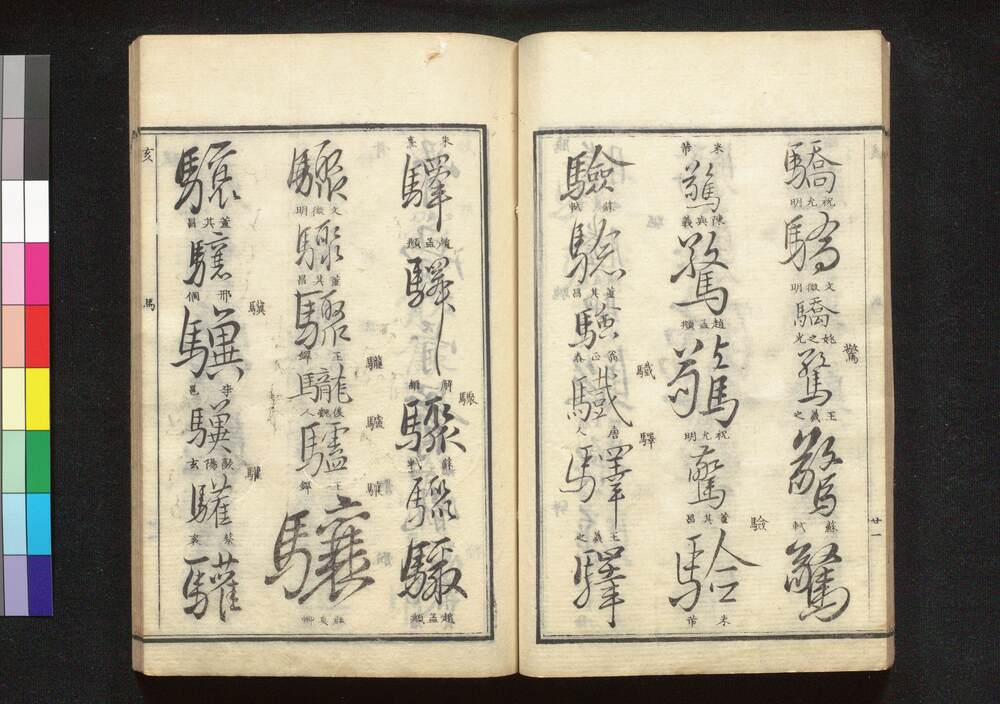 驕
祝允明
驕
文徵明
驕
姚之光
驚
驚
王羲之
驚
蘇軾
驚
廿一
米芾
驚
陳與義
驚
趙孟頫
驚
祝允明
驚
董其昌
驗
驗
米芾
驗
蘇軾
驗
董其昌
驗
翁正春
驖
驖
唐人
驛
驛
王羲之
驛
朱熹
驛
趙孟頫
驛
解縉
驟
驟
蘇軾
驟
驟
趙孟頫
驟
文徵明
驟
董其昌
驟
王鐸
驡
驢
王鐸
驤
驤
董其昌
驤
邢侗
驥
驥
李邕
驥
歐陽玄
驩
驩
蔡襄
驩
亥
馬